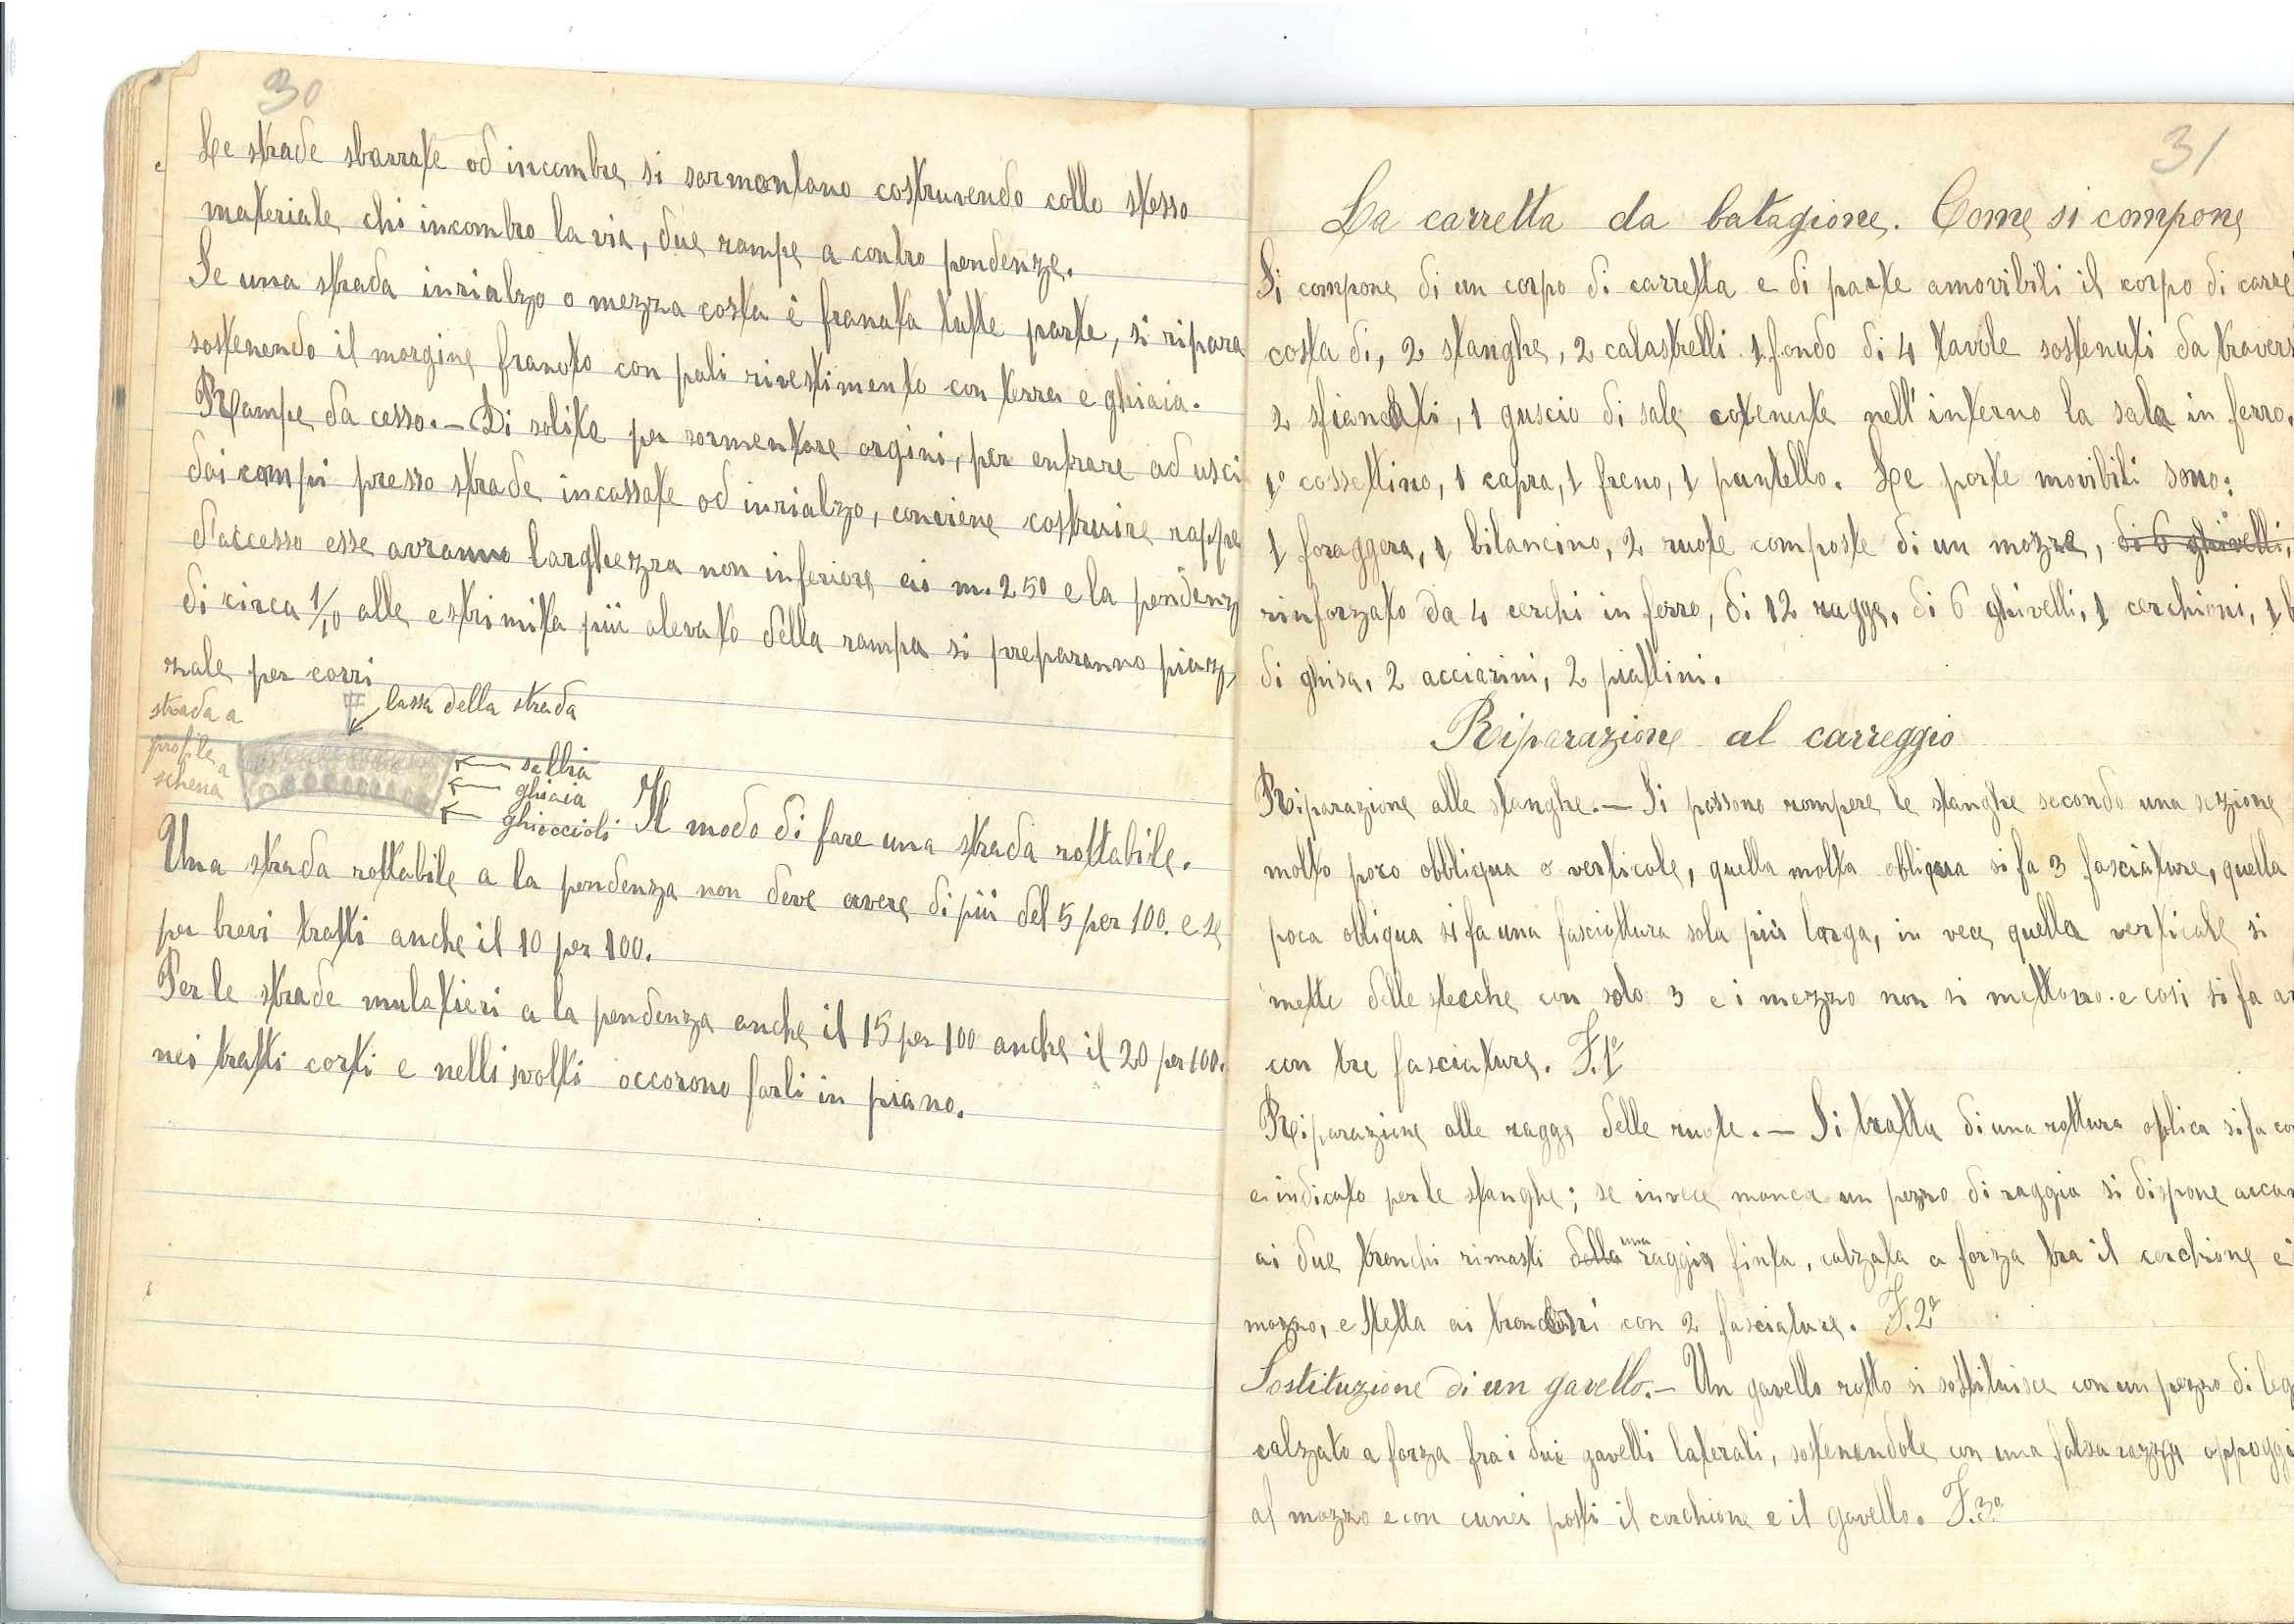 30
Le strade sbarrate od incombre si sormontano costruvendo collo stesso
materiale chi incombro la via, due rampe a contro pendenze.
Se una strada inrialzo o mezza costa è franata tutte parte, si ripara
sostenendo il margine franato con pali rivestimento con terra e ghiaia.
Rampe da cesso. — Di solite per sormentare argini, per entrare od usci
dai campi presso strade incassate od inrialzo, conviene costruire rappe
d'accesso esse avranno larghezza non inferiore ai m. 2 50 e la pendenz
di circa 1/10 alle estrimita più alevato della rampa si preparanno piaz
zale per carri
strada a
profile a
schena
bassa della strada
sabbia
ghiaia
ghioccioli
Il modo di fare una strada rottabile.
Una strada rottabile a la pendenza non deve avere di più del 5 per 100. e se
per brevi tratti anche il 10 per 100.
Per le strade mulatieri a la pendenza anche il 15 per 100 anche il 20 per 100.
nei tratti corti e nelli svolti occorono farli in piano.
31
La carretta da batagione. Come si compone
Si compone di un corpo di carretta e di parte amovibili il corpo di carre
costa di, 2 stanghe, 2 calastrelli 1 fondo di 4 tavole sostenuti da travers
2 sfiancati, 1 guscio di sale cotenente nell'interno la sala in ferro.
1º cassettino, 1 capra, 1 freno, 1 puntello. Le parte movibili sono:
1 foraggera, 1 bilancino, 2 ruote composte di un mozze, di 6 ghivelli,
rinforzato da 4 cerchi in ferro, di 12 ragge, di 6 ghivelli, 1 cerchioni, 1 b
di ghisa, 2 acciarini, 2 piattini.
Riparazione al carreggio
Riparazione alle stanghe. — Si possono rompere le stanghe secondo una sezione
molto poro obbliqua o verticale, quella molta obliqua si fa 3 fasciature, quella
poca obliqua si fa una fasciattura sola più larga, in vece quella verticale si
mette delle stecche con solo 3 e i mezzo non si mettono. e cosi si fa an
con tre fasciature. F. 1ª
Riparazione alle ragge delle ruote. — Si tratta di una rottura oblica si fa co
e indicato per le stanghe; se invece manca un pezzo di raggia si dispone accan
ai due tronchi rimasti della una raggia finta, calzata a forza tra il cerchione e i
mozzo, e stetta ai tronconi con 2 fasciature. F. 2ª
Sostituzione di un gavello. — Un gavello rotto si sostituisce con un pezzo di leg
calzato a forza fra i due gavelli laterali, sostenendole con una falsa razza appoggi
al mozzo e con cunei posti il cerchione e il gavello. F. 3ª